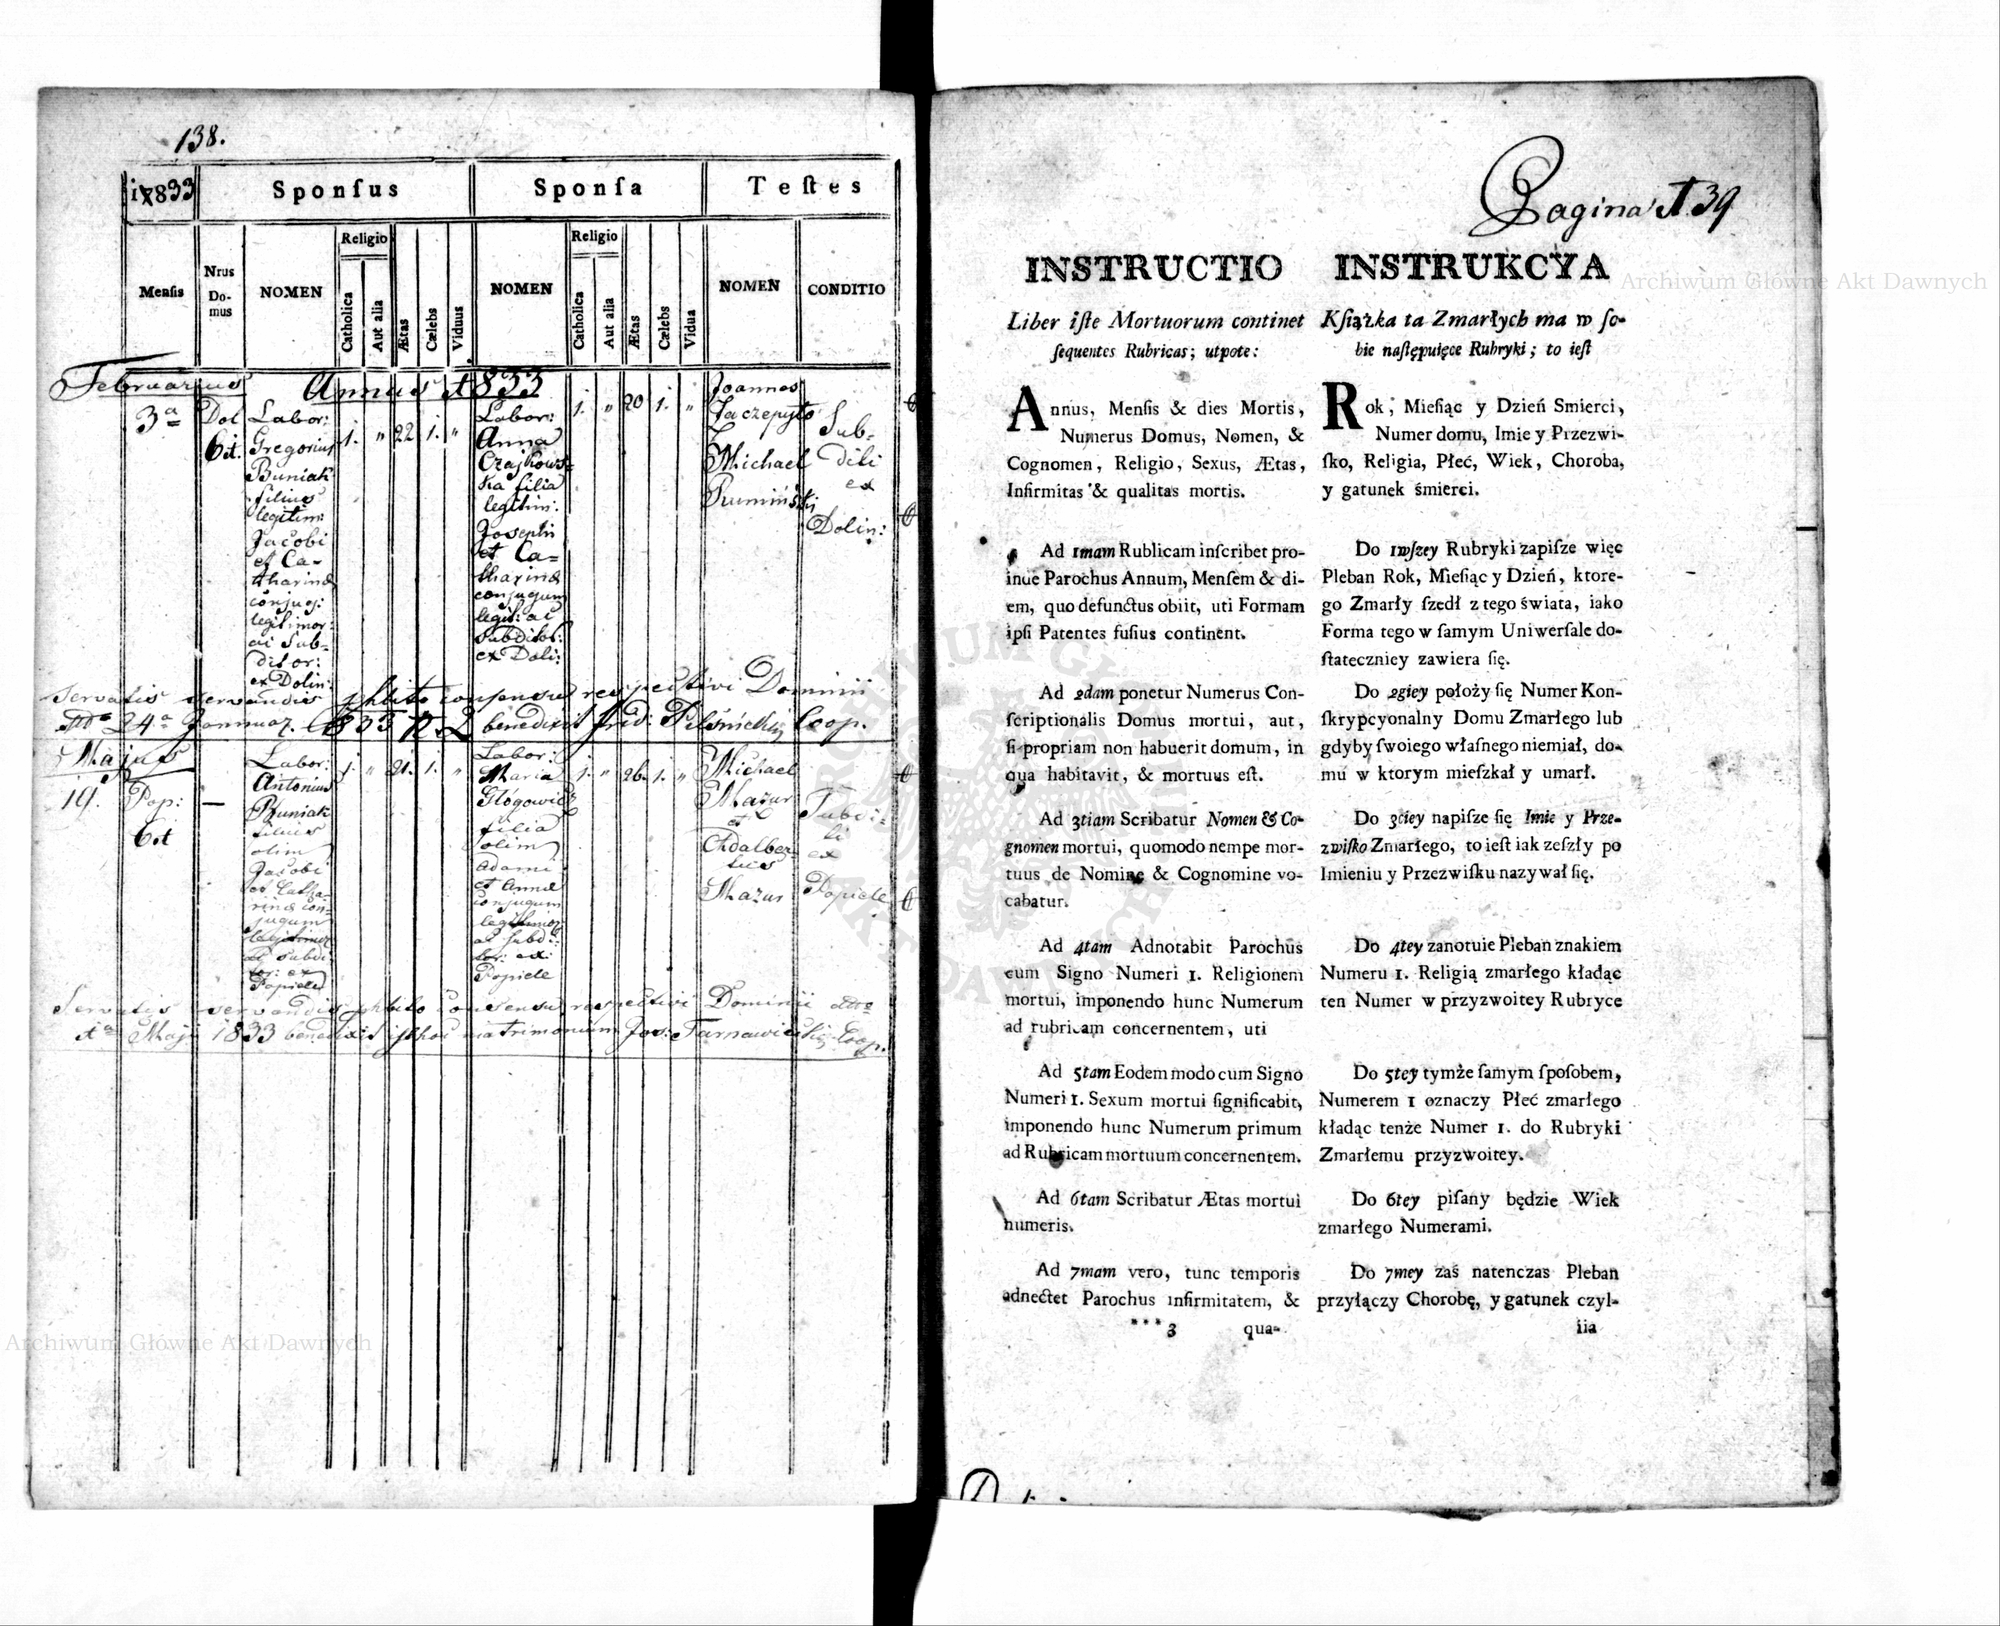 138.
1833
Sponſus
Sponſa
Teſtes
Menſis
Nrus Domus
NOMEN
Religio
Catholica
Aut alia
Ætas
Cælebs
Viduus
NOMEN
Religio
Catholica
Aut alia
Ætas
Cælebs
Vidua
NOMEN
CONDITIO
Februarius
Annus 1833
3a
Dol
6it.
Labor:
Gregorius
Buniak
filius
legitim:
Jacobi
et Ca-
tharinæ
conjug:
legitimor:
ac Sub-
ditor:
ex Dolin:
1.
"
22
1.
"
Labor:
Anna
Czajkows-
ka filia
legitim:
Josephi
et Ca-
tharinæ
conjugum
legit: ac
Subditor:
ex Doli:
1.
"
20
1.
"
Joannes
Zaczepyło
Michael
Rumiński
Sub-
diti
ex
Dolin:
Servatis servandis consensu respectivi Dominii
24a Januar. 1833 N. 2 benedixit Coop.
Majus
19.
Pop:
6it
—
Labor:
Antonius
Buniak
filius
olim
Jacobi
et Catha-
rinæ con-
jugum
legitimor
ac subdi
tor: ex
Popiele
1.
"
21.
1.
"
Labor:
Maria
Głogowic
filia
olim
Adami
et Annæ
conjugum
legitimor
ac subdi-
tor: ex
Popiele
1.
"
26.
1.
"
Michael
Mazur
et
Adalber-
tus
Mazur
Subdi-
ti
ex
Popiele
Servatis servandis consensu respectivi Dominii
Maji 1833 benedixit matrimonium Jos: Tarnawiecki Coop.
Pagina 139
INSTRUCTIO
Liber iſte Mortuorum continet
ſequentes Rubricas; utpote:
Annus, Menſis & dies Mortis,
Numerus Domus, Nomen, &
Cognomen, Religio, Sexus, Ætas,
Infirmitas & qualitas mortis.
Ad 1mam Rublicam inſcribet pro-
inde Parochus Annum, Menſem & di-
em, quo defunctus obiit, uti Formam
ipſi Patentes fuſius continent.
Ad 2dam ponetur Numerus Con-
ſcriptionalis Domus mortui, aut,
ſi propriam non habuerit domum, in
qua habitavit, & mortuus eſt.
Ad 3tiam Scribatur Nomen & Co-
gnomen mortui, quomodo nempe mor-
tuus de Nomine & Cognomine vo-
cabatur.
Ad 4tam Adnotabit Parochus
cum Signo Numeri 1. Religionem
mortui, imponendo hunc Numerum
ad rubricam concernentem, uti
Ad 5tam Eodem modo cum Signo
Numeri 1. Sexum mortui ſignificabit,
imponendo hunc Numerum primum
ad Rubricam mortuum concernentem.
Ad 6tam Scribatur Ætas mortui
numeris.
Ad 7mam vero, tunc temporis
adnectet Parochus infirmitatem, &
***3 qua-
INSTRUKCYA
Kſiążka ta Zmarłych ma w ſo-
bie naſtępuięce Rubryki; to ieſt
Rok, Mieſiąc y Dzień Smierci,
Numer domu, Imie y Przezwi-
ſko, Religia, Płeć, Wiek, Choroba,
y gatunek śmierci.
Do 1wſzey Rubryki zapiſze więc
Pleban Rok, Mieſiąc y Dzień, ktore-
go Zmarły ſzedł z tego świata, iako
Forma tego w ſamym Uniwerſale do-
ſtateczniey zawiera ſię.
Do 2giey położy ſię Numer Kon-
ſkrypcyonalny Domu Zmarłego lub
gdyby ſwoiego właſnego niemiał, do-
mu w ktorym mieſzkał y umarł.
Do 3ciey napiſze ſię Imie y Prze-
zwiſko Zmarłego, to ieſt iak zeſzły po
Imieniu y Przezwiſku nazywał ſię.
Do 4tey zanotuie Pleban znakiem
Numeru 1. Religią zmarłego kładąc
ten Numer w przyzwoitey Rubryce
Do 5tey tymże ſamym ſpoſobem,
Numerem 1 oznaczy Płeć zmarłego
kładąc tenże Numer 1. do Rubryki
Zmarłemu przyzwoitey.
Do 6tey piſany będzie Wiek
zmarłego Numerami.
Do 7mey zaś natenczas Pleban
przyłączy Chorobę, y gatunek czyl-
iia
Archiwum Główne Akt Dawnych
Archiwum Główne Akt Dawnych
ARCHIWUM GŁÓWNE AKT DAWNYCH